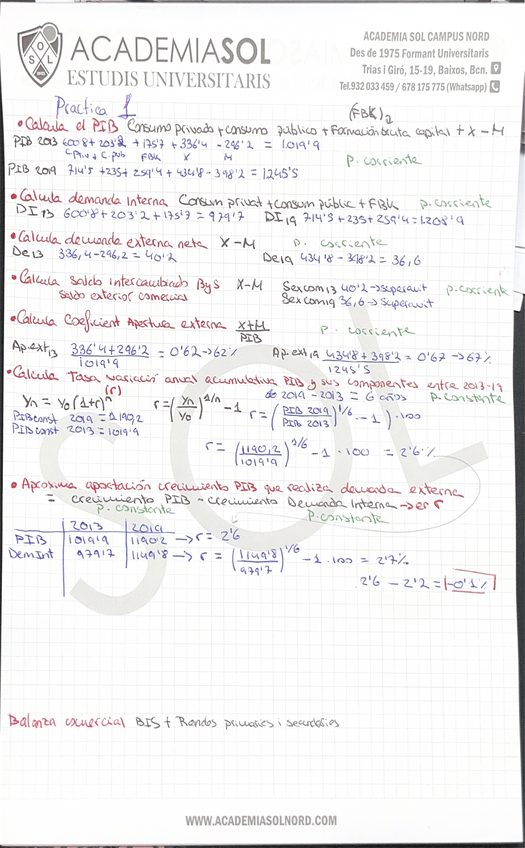 ACADEMIASOL
ESTUDIS UNIVERSITARIS
ACADEMIA SOL CAMPUS NORD
Des de 1975 Formant Universitaris
Trias i Giró, 15-19, Baixos, Bcn.
Tel.932 033 459 / 678 175 775 (Whatsapp)
Practica 1
(FBK)2
• Calcula el PIB Consumo privado + consumo público + Formación bruta capital + X - M
PIB 2013 600'8 + 203'2 + 175'7 + 336'4 - 296'2 = 1019'9
C.Priv + C.pub FBK X M
p. corriente
PIB 2019 714'5 + 235 + 259'4 + 434'8 - 398'2 = 1245'5
• Calcula demanda Interna Consum privat + consum públic + FBK p. corriente
DI13 600'8 + 203'2 + 175'7 = 979'7 DI19 714'5 + 235 + 259'4 = 1208'9
• Calcula demanda externa neta X-M p. corriente
De13 336,4 - 296,2 = 40'2 De19 434'8 - 398'2 = 36,6
• Calcula saldo intercambiado BYS X-M Sexcom13 40'2 → superavit p. corriente
saldo exterior comercial Sexcom19 36,6 → superavit
• Calcula Coeficient Apertura externa X+M / PIB p. corriente
Ap.ext13 336'4 + 296'2 / 1019'9 = 0'62 → 62% Ap.ext19 434'8 + 398'2 / 1245'5 = 0'67 → 67%
• Calcula Tasa variació anual acumulativa PIB y sus componentes entre 2013-19
(r) de 2019 - 2013 = 6 años p. constante
Yn = Y0 (1+r)^n r = (Yn / Y0)^1/n - 1 r = ((PIB 2019 / PIB 2013)^1/6 - 1) · 100
PIB const 2019 = 1190,2
PIB const 2013 = 1019'9
r = (1190,2 / 1019'9)^1/6 - 1 · 100 = 2'6%
• Aproxima aportación crecimiento PIB que realiza demanda externa
= crecimiento PIB - crecimiento Demanda Interna → en r
p. constante p. constante
2013 2019
PIB 1019'9 1190'2 → r = 2'6
Dem Int 979'7 1149'8 → r = (1149'8 / 979'7)^1/6 - 1 · 100 = 2'7%
2'6 - 2'2 = -0'1%
Balanza comercial BIS + Rendas primaries i secundaries
WWW.ACADEMIASOLNORD.COM